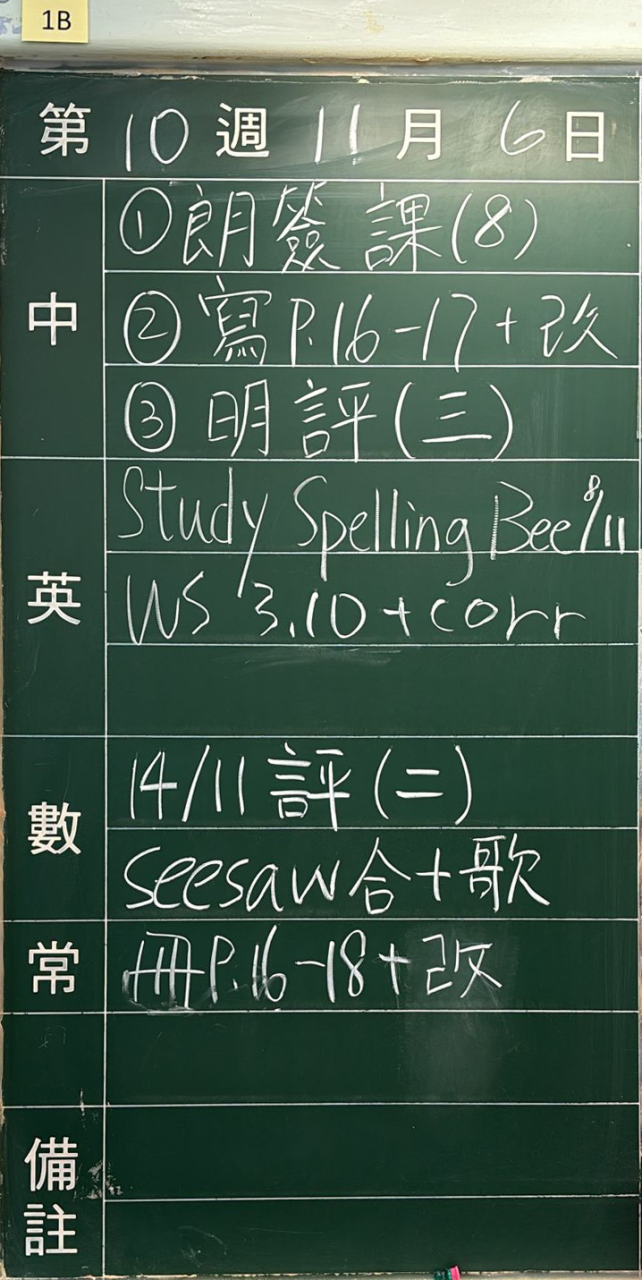 1B
第10週11月6日
中
①朗簽課(8)
②寫P.16-17+改
③明評(三)
英
Study Spelling Bee 8/11
WS 3.10+corr
數
14/11評(二)
seesaw合+歌
常
冊P.16-18+改
備註